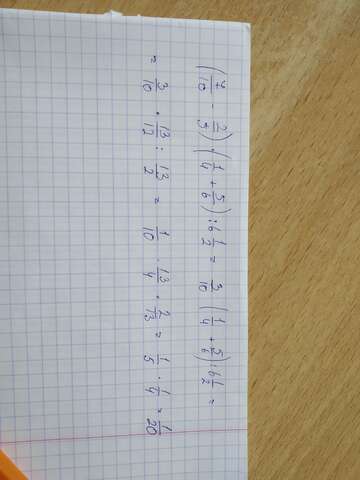 (7/10 - 2/5) · (1/4 + 5/6) : 6 1/2 = 3/10 (1/4 + 5/6) : 6 1/2 =
= 3/10 · 13/12 : 13/2 = 1/10 · 13/4 · 2/13 = 1/5 · 1/4 = 1/20